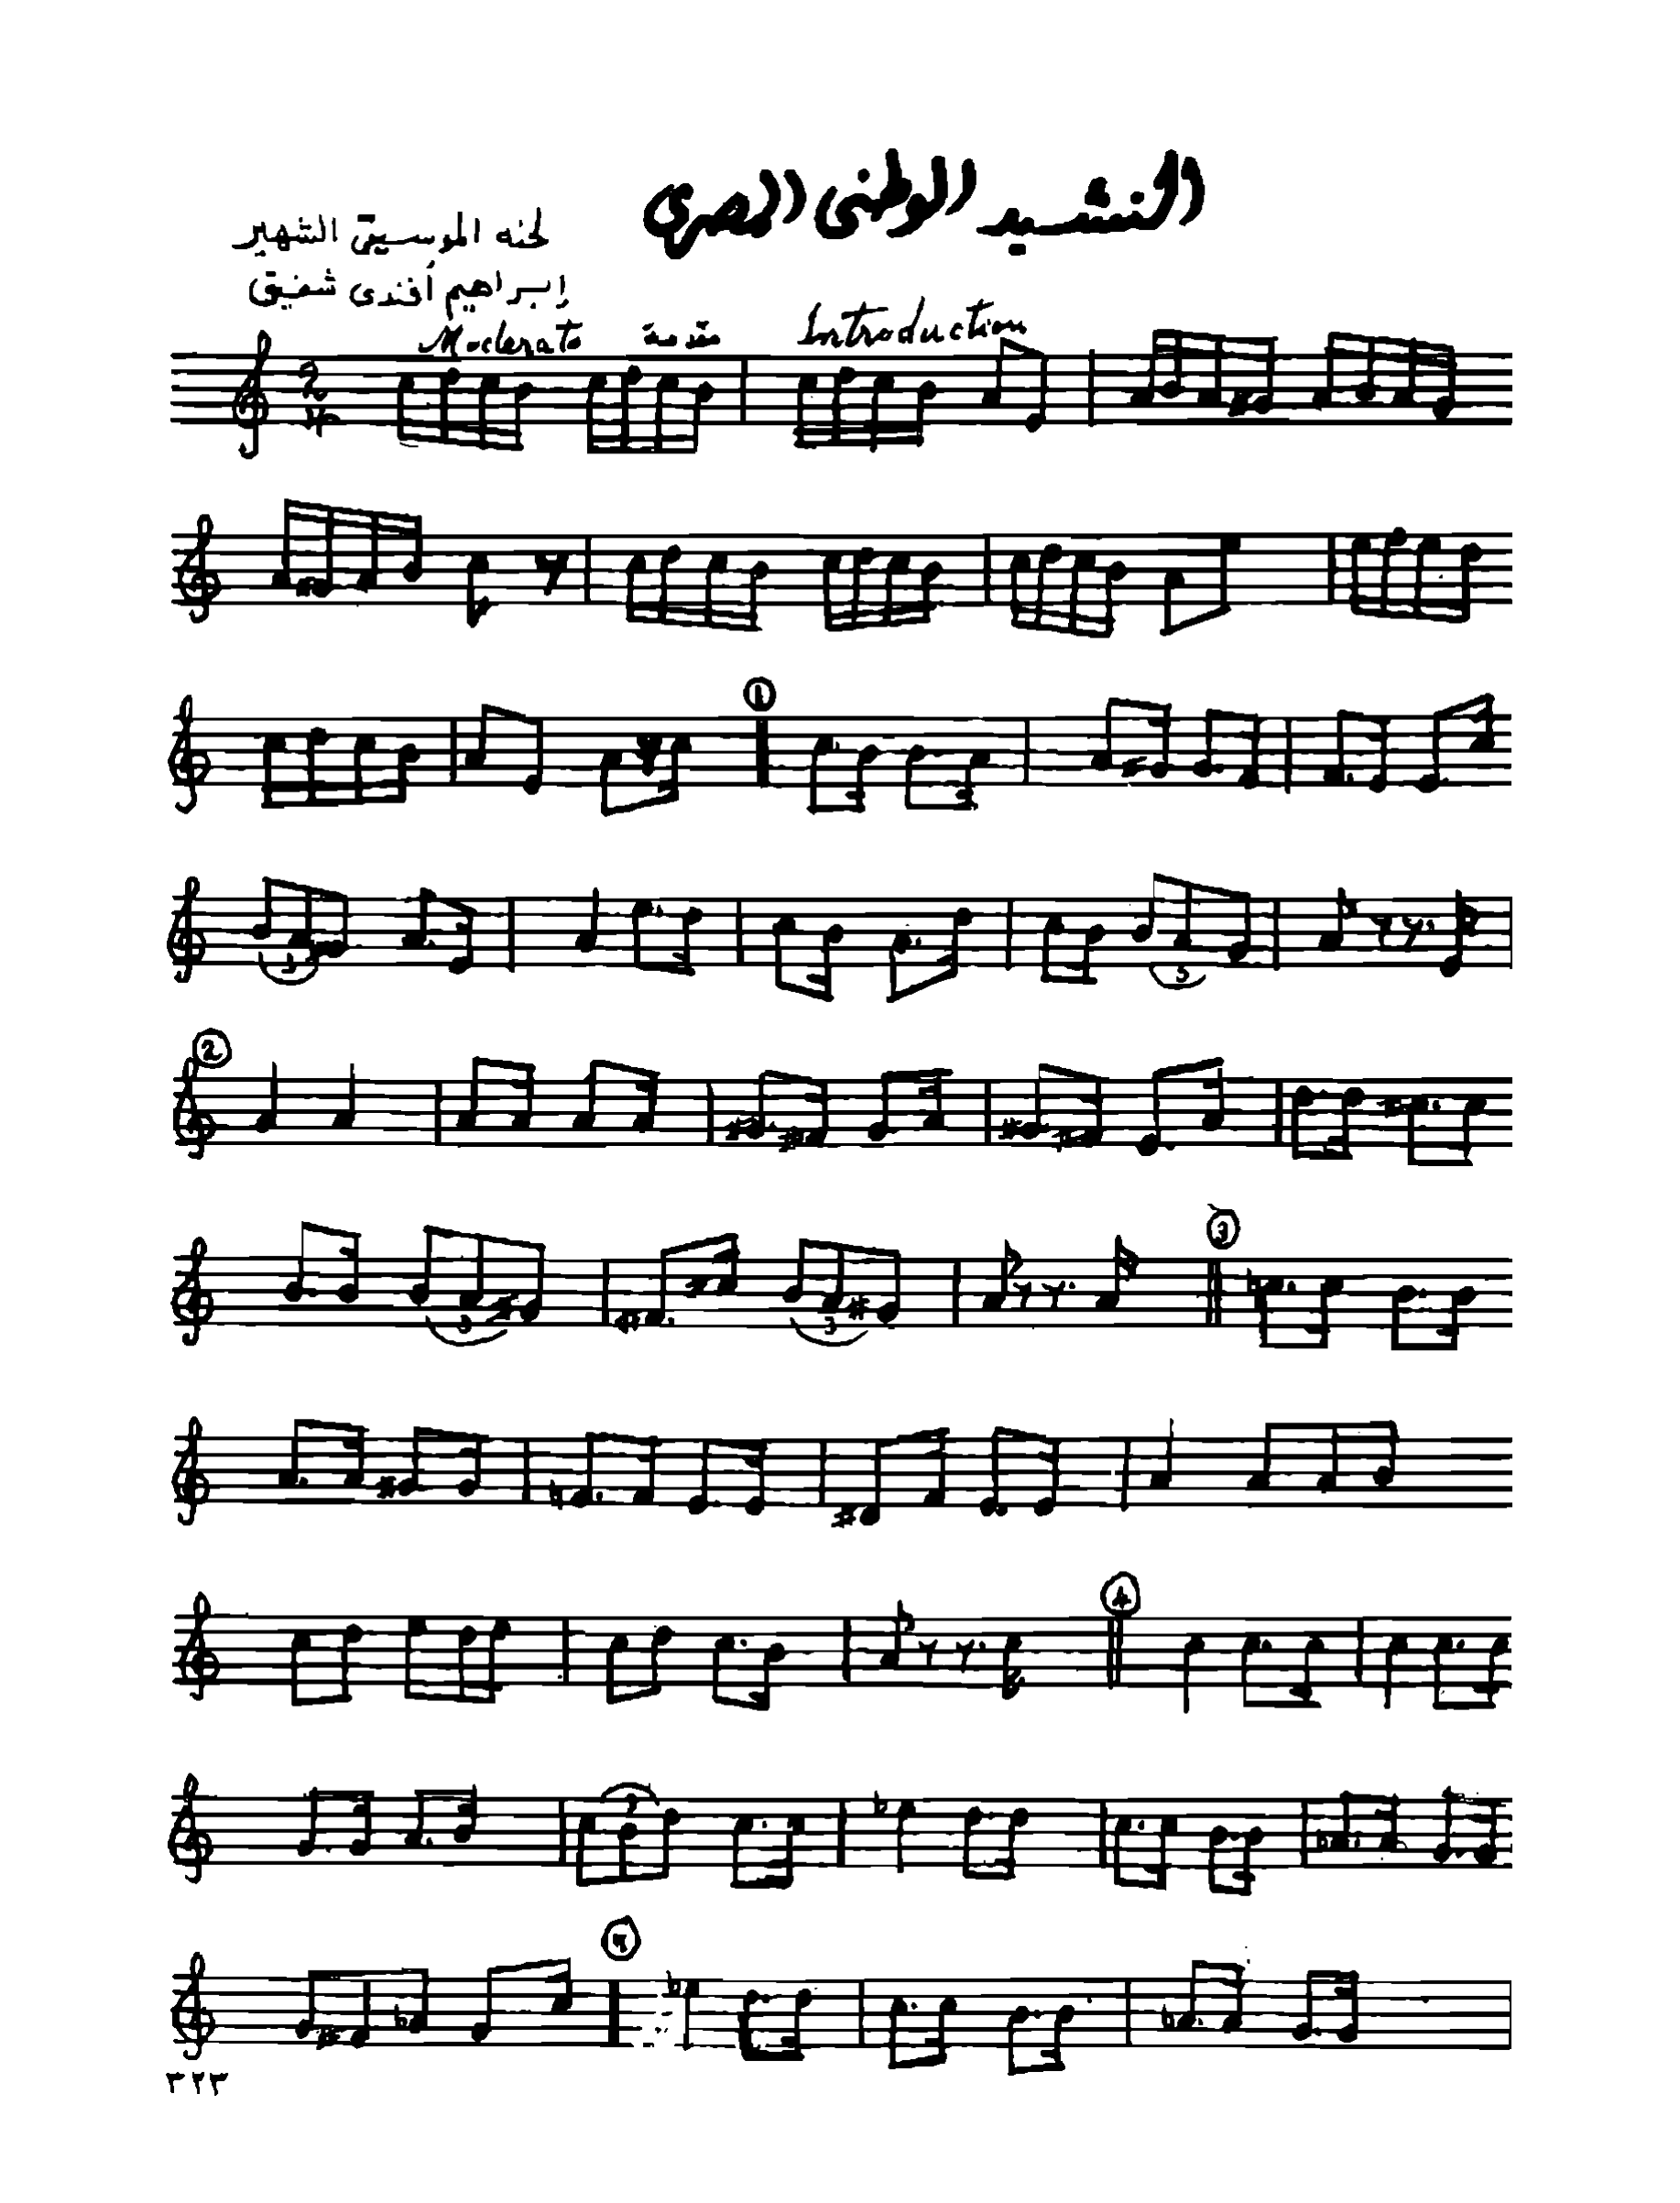 النشيد الوطنى المصرى
لحنه الموسيقى الشهير
إبراهيم أفندى شفيق
Moderato مقدمة Introduction
2
4
1
3
5
2
3
3
3
4
3
٣٢٣